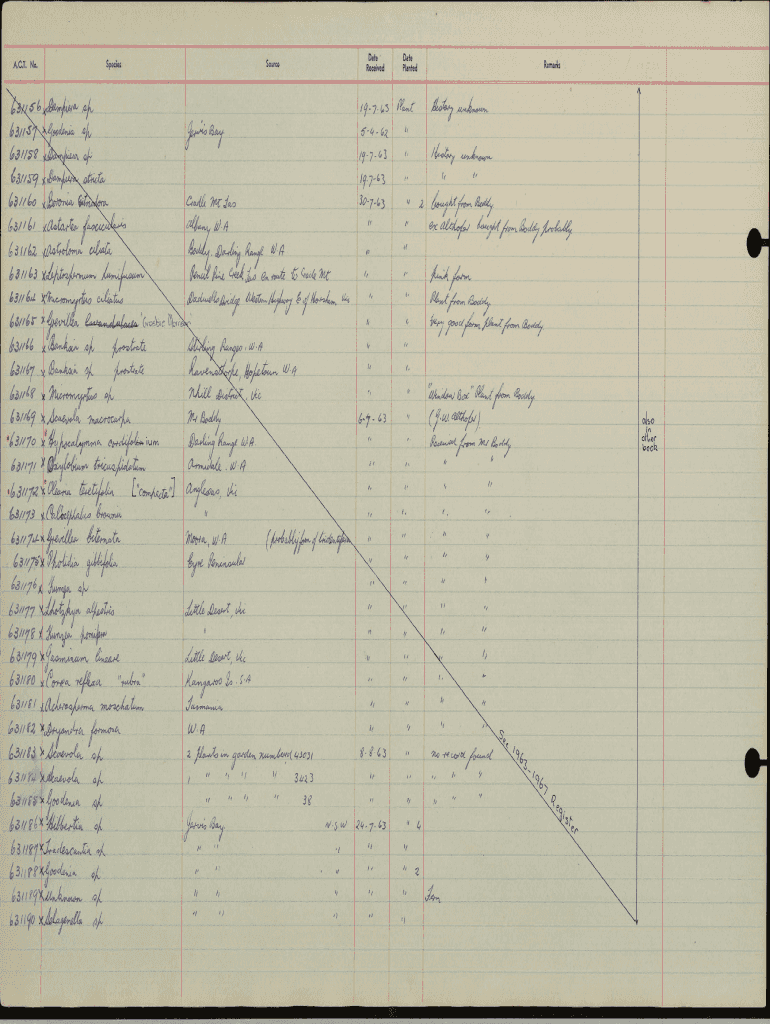 A.C.T. No. Species Source Date Received Date Planted Remarks
631156 x Dampiera sp 19-7-63 Plant History unknown
631157 x Goodenia sp Jervis Bay 5-4-62 "
631158 x Dampiera sp 19-7-63 " History unknown
631159 x Dampiera stricta 19-7-63 " " "
631160 x Boronia citriodora Cradle Mt Tas 30-7-63 " 2 bought from Boddy
631161 x Astartea fascicularis Albany, W.A " " ex Althofer bought from Boddy probably
631162 x Astroloma ciliata Boddy, Darling Range W.A " "
631163 x Leptospermum humifusum Pencil Pine Creek Tas en route to Cradle Mt " " Pink form
631164 x Micromyrtus ciliatus Dadwells Bridge Western Highway E of Horsham, Vic " " Plant from Boddy
631165 x Grevillea " " Very good form, Plant from Boddy
631166 x Banksia sp prostrate Stirling Ranges. W.A " "
631167 x Banksia sp prostrate Ravensthorpe, Hopetown W.A " "
631168 x Micromyrtus sp Nhill District, Vic " " "Window Box" Plant from Boddy
631169 x Scaevola macrocarpa Mr Boddy 6-9-63 " (G.W. Althofer)
631170 x Hypocalymma cordifolium Darling Range W.A " " Received from Mr Boddy
631171 x Oxylobium tricuspidatum Armidale. W.A " " " "
631172 x Olearia teretifolia ["compacta"] Anglesea, Vic " " " "
631173 x Calocephalus brownii " " " " "
631174 x Grevillea biternata Moora, W.A (probably form of " " " "
631175 x Pholidia gibbifolia Eyre Peninsular " " " "
631176 x Kunzea sp " " " "
631177 x Lhotzkya alpestris Little Desert, Vic " " " "
631178 x Kunzea pomifera " " " " "
631179 x Jasminum lineare Little Desert, Vic " " " "
631180 x Correa reflexa "rubra" Kangaroo Is. S.A " " " "
631181 x Atherosperma moschatum Tasmania " " " "
631182 x Dryandra formosa W.A " " " "
631183 x Scaevola sp 2 Plants in garden numbered 43031 8-8-63 " no record found
631184 x Scaevola sp 1 " " " " 3423 " " " " "
631185 x Goodenia sp " " " " 38 " " " " "
631186 x Hibbertia sp Jervis Bay N.S.W 24-7-63 " 4
631187 x Tradescantia sp " " " " "
631188 x Goodenia sp " " " " " 2
631189 x Unknown sp " " " " " Fern
631190 x Selaginella sp " " " " "
See 1963-1967 Register
also
in
other
book